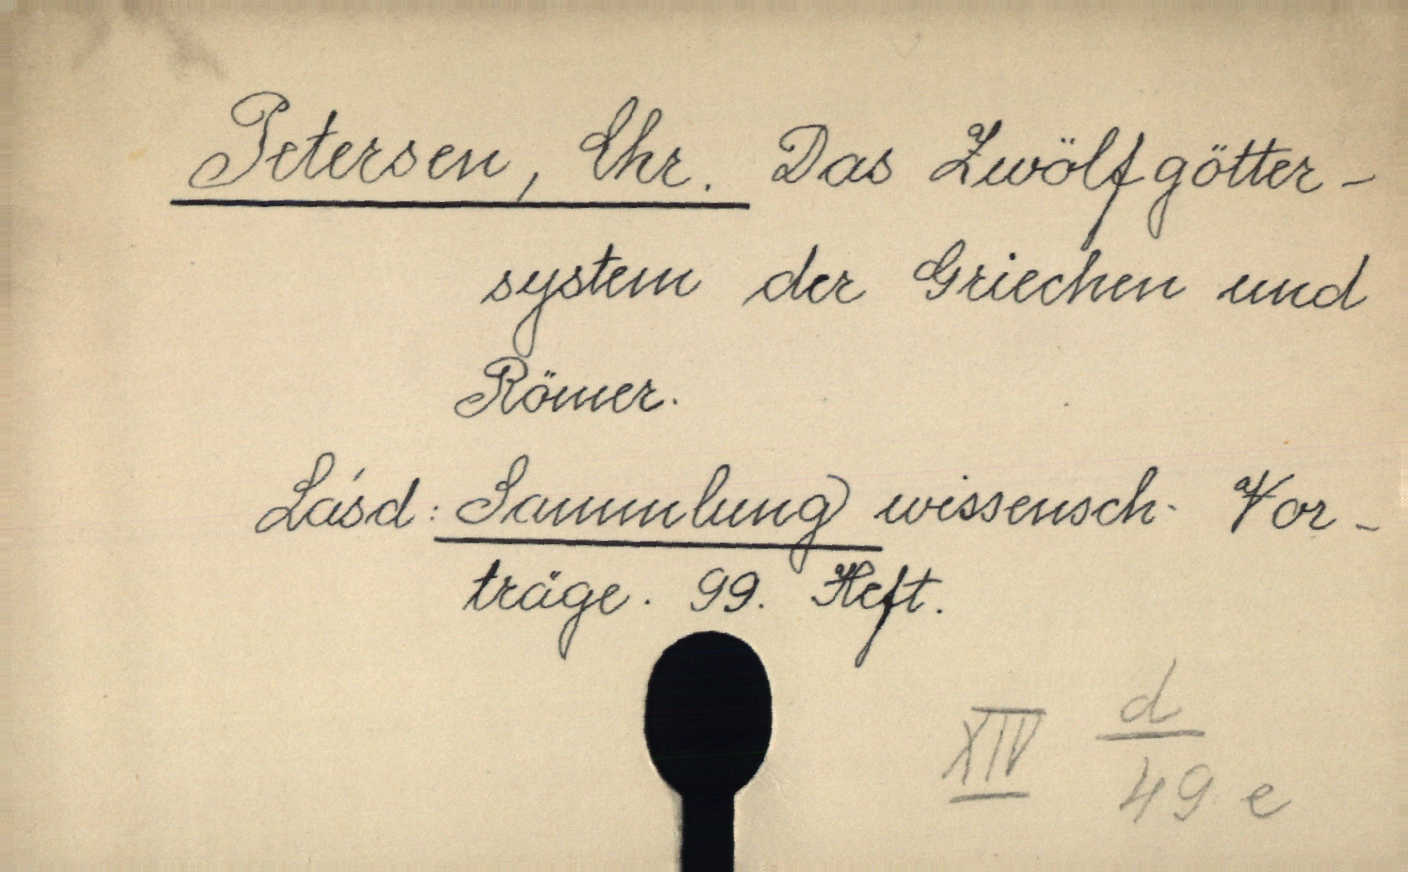 Petersen, Chr. Das Zwölfgötter-
system der Griechen und
Römer.
Lásd: Sammlung wissensch. Vor-
träge. 99. Heft.
XIV d
49 e